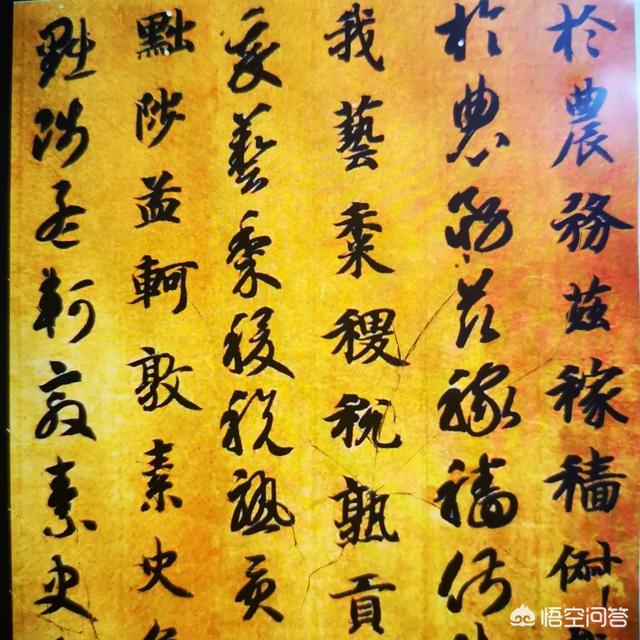 於農務茲稼穡俶
於農務茲稼穡俶
我藝黍稷稅熟貢
我藝黍稷稅熟貢
黜陟孟軻敦素史
黜陟孟軻敦素史
悟空问答